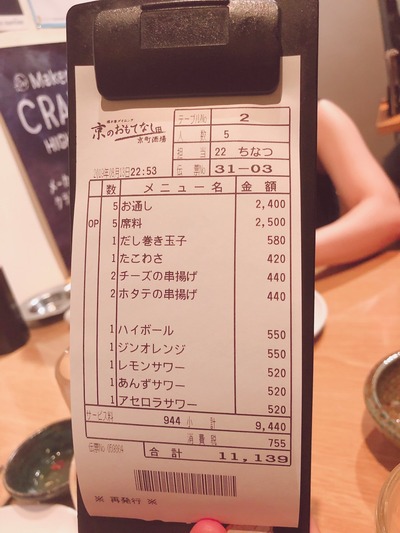 Make
CRA
京のおもてなし
京町酒場
テーブルNo 2
人 数 5
担 当 22 ちなつ
伝 票No 31-03
22:53
数 メニュー名 金 額
5 お通し 2,400
OP 5 席料 2,500
1 だし巻き玉子 580
1 たこわさ 420
2 チーズの串揚げ 440
2 ホタテの串揚げ 440
1 ハイボール 550
1 ジンオレンジ 550
1 レモンサワー 520
1 あんずサワー 520
1 アセロラサワー 520
サービス料 944 小 計 9,440
消 費 税 755
合 計 11,139
※ 再発行 ※